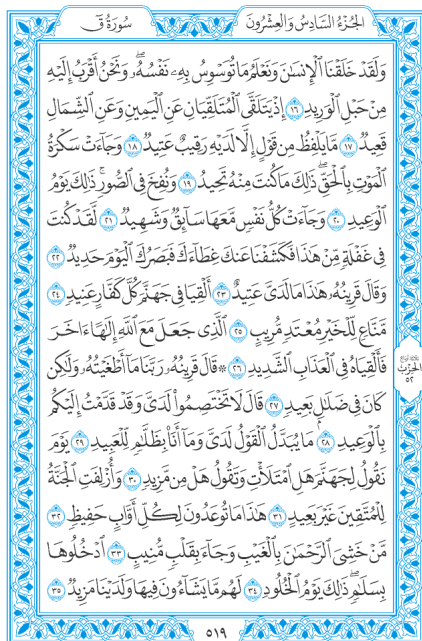 الجُزْءُ السَّادِسُ وَالعِشْرُونَ
سُورَةُ قٓ
وَلَقَدْ خَلَقْنَا ٱلْإِنسَٰنَ وَنَعْلَمُ مَا تُوَسْوِسُ بِهِۦ نَفْسُهُۥۖ وَنَحْنُ أَقْرَبُ إِلَيْهِ
مِنْ حَبْلِ ٱلْوَرِيدِ ١٦ إِذْ يَتَلَقَّى ٱلْمُتَلَقِّيَانِ عَنِ ٱلْيَمِينِ وَعَنِ ٱلشِّمَالِ
قَعِيدٌ ١٧ مَّا يَلْفِظُ مِن قَوْلٍ إِلَّا لَدَيْهِ رَقِيبٌ عَتِيدٌ ١٨ وَجَآءَتْ سَكْرَةُ
ٱلْمَوْتِ بِٱلْحَقِّۖ ذَٰلِكَ مَا كُنتَ مِنْهُ تَحِيدُ ١٩ وَنُفِخَ فِي ٱلصُّورِۚ ذَٰلِكَ يَوْمُ
ٱلْوَعِيدِ ٢٠ وَجَآءَتْ كُلُّ نَفْسٍ مَّعَهَا سَآئِقٌ وَشَهِيدٌ ٢١ لَّقَدْ كُنتَ
فِي غَفْلَةٍ مِّنْ هَٰذَا فَكَشَفْنَا عَنكَ غِطَآءَكَ فَبَصَرُكَ ٱلْيَوْمَ حَدِيدٌ ٢٢
وَقَالَ قَرِينُهُۥ هَٰذَا مَا لَدَيَّ عَتِيدٌ ٢٣ أَلْقِيَا فِي جَهَنَّمَ كُلَّ كَفَّارٍ عَنِيدٍ ٢٤
مَّنَّاعٍ لِّلْخَيْرِ مُعْتَدٍ مُّرِيبٍ ٢٥ ٱلَّذِي جَعَلَ مَعَ ٱللَّهِ إِلَٰهًا ءَاخَرَ
فَأَلْقِيَاهُ فِي ٱلْعَذَابِ ٱلشَّدِيدِ ٢٦ ۞ قَالَ قَرِينُهُۥ رَبَّنَا مَآ أَطْغَيْتُهُۥ وَلَٰكِن
كَانَ فِي ضَلَٰلٍۭ بَعِيدٍ ٢٧ قَالَ لَا تَخْتَصِمُوا۟ لَدَيَّ وَقَدْ قَدَّمْتُ إِلَيْكُم
بِٱلْوَعِيدِ ٢٨ مَا يُبَدَّلُ ٱلْقَوْلُ لَدَيَّ وَمَآ أَنَا۠ بِظَلَّٰمٍ لِّلْعَبِيدِ ٢٩ يَوْمَ
نَقُولُ لِجَهَنَّمَ هَلِ ٱمْتَلَأْتِ وَتَقُولُ هَلْ مِن مَّزِيدٍ ٣٠ وَأُزْلِفَتِ ٱلْجَنَّةُ
لِلْمُتَّقِينَ غَيْرَ بَعِيدٍ ٣١ هَٰذَا مَا تُوعَدُونَ لِكُلِّ أَوَّابٍ حَفِيظٍ ٣٢
مَّنْ خَشِيَ ٱلرَّحْمَٰنَ بِٱلْغَيْبِ وَجَآءَ بِقَلْبٍ مُّنِيبٍ ٣٣ ٱدْخُلُوهَا
بِسَلَٰمٍۖ ذَٰلِكَ يَوْمُ ٱلْخُلُودِ ٣٤ لَهُم مَّا يَشَآءُونَ فِيهَا وَلَدَيْنَا مَزِيدٌ ٣٥
الحِزْب
٥٢
٥١٩